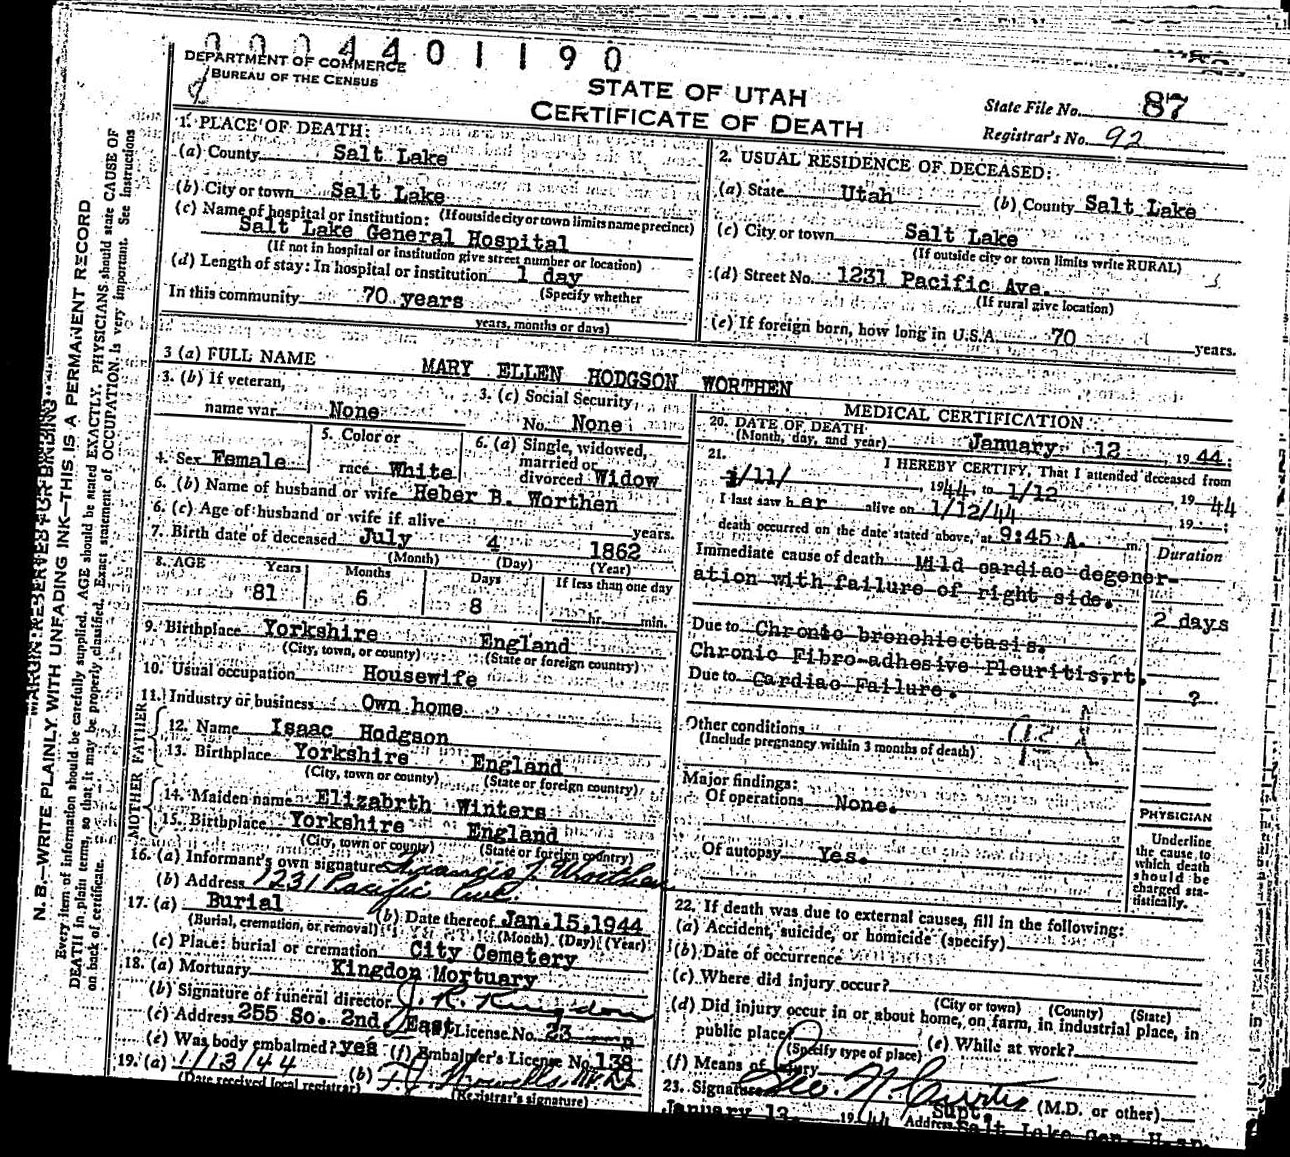 0004401190
DEPARTMENT OF COMMERCE
BUREAU OF THE CENSUS
STATE OF UTAH
CERTIFICATE OF DEATH
State File No. 87
Registrar's No. 92
1. PLACE OF DEATH:
(a) County Salt Lake
(b) City or town Salt Lake
(c) Name of hospital or institution: (If outside city or town limits name precinct)
Salt Lake General Hospital
(If not in hospital or institution give street number or location)
(d) Length of stay: In hospital or institution 1 day
(Specify whether
In this community 70 years
years, months or days)
2. USUAL RESIDENCE OF DECEASED:
(a) State Utah (b) County Salt Lake
(c) City or town Salt Lake
(If outside city or town limits write RURAL)
(d) Street No. 1231 Pacific Ave.
(If rural give location)
(e) If foreign born, how long in U.S.A. 70 years.
3 (a) FULL NAME MARY ELLEN HODGSON WORTHEN
3. (b) If veteran,
name war None
3. (c) Social Security
No. None
4. Sex Female
5. Color or
race White
6. (a) Single, widowed,
married or
divorced Widow
6. (b) Name of husband or wife Heber B. Worthen
6. (c) Age of husband or wife if alive years.
7. Birth date of deceased July 4 1862
(Month) (Day) (Year)
8. AGE Years Months Days If less than one day
81 6 8 hr. min.
9. Birthplace Yorkshire England
(City, town, or county) (State or foreign country)
10. Usual occupation Housewife
11. Industry or business Own home
FATHER
12. Name Isaac Hodgson
13. Birthplace Yorkshire England
(City, town or county) (State or foreign country)
MOTHER
14. Maiden name Elizabrth Winters
15. Birthplace Yorkshire England
(City, town or county) (State or foreign country)
16. (a) Informant's own signature Francis J Worthen
(b) Address 1231 Pacific Ave.
17. (a) Burial (b) Date thereof Jan.15,1944
(Burial, cremation, or removal) (Month) (Day) (Year)
(c) Place: burial or cremation City Cemetery
18. (a) Mortuary Kingdon Mortuary
(b) Signature of funeral director J. R. Kingdon
(c) Address 255 So. 2nd East License No. 23
(e) Was body embalmed? yes (f) Embalmer's License No. 138
19. (a) 1/13/44 (b)
(Date received local registrar) (Registrar's signature)
MEDICAL CERTIFICATION
20. DATE OF DEATH
(Month, day, and year) January 12 1944:
21. I HEREBY CERTIFY, That I attended deceased from
1/11/ 1944, to 1/12 1944
I last saw her alive on 1/12/44 19 ;
death occurred on the date stated above, at 9:45 A. m.
Duration
Immediate cause of death Mild cardiac degener-
ation with failure of right side.
2 days
Due to Chronic bronchiectasis.
Chronic Fibro-adhesive Pleuritis,rt.
Due to Cardiac Failure.
?
Other conditions
(Include pregnancy within 3 months of death)
Major findings:
Of operations None.
Of autopsy Yes.
PHYSICIAN
Underline
the cause to
which death
should be
charged sta-
tistically.
22. If death was due to external causes, fill in the following:
(a) Accident, suicide, or homicide (specify)
(b) Date of occurrence
(c) Where did injury occur?
(City or town) (County) (State)
(d) Did injury occur in or about home, on farm, in industrial place, in
public place? (e) While at work?
(Specify type of place)
(f) Means of injury
23. Signature Geo. N. Curtis (M.D. or other)
Supt.
January 12, 1944 Address Salt Lake Gen. Hosp.
MARGIN RESERVED FOR BINDING
N. B.—WRITE PLAINLY WITH UNFADING INK—THIS IS A PERMANENT RECORD
Every item of information should be carefully supplied. AGE should be stated EXACTLY. PHYSICIANS should state CAUSE OF
DEATH in plain terms, so that it may be properly classified. Exact statement of OCCUPATION is very important. See Instructions
on back of certificate.